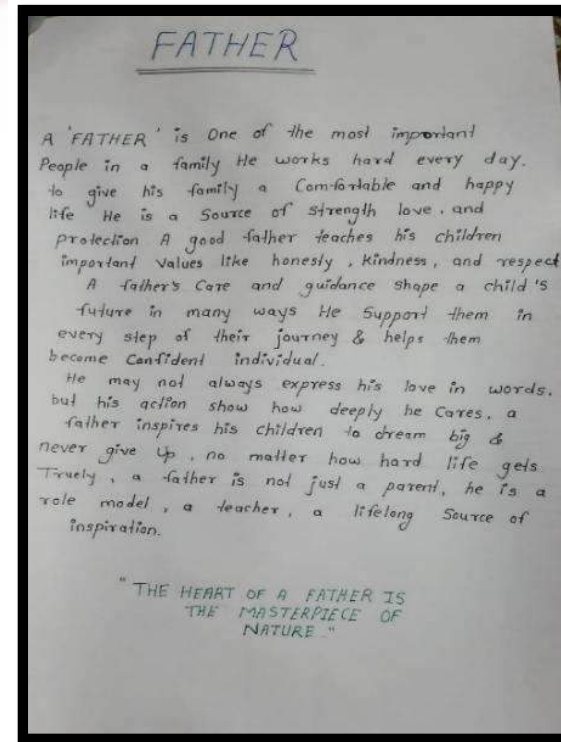 FATHER
A 'FATHER' is One of the most important
People in a family He works hard every day.
to give his family a Comfortable and happy
life He is a Source of strength love, and
protection A good father teaches his children
important values like honesty, kindness, and respect
A father's Care and guidance shape a child's
future in many ways He Support them in
every step of their journey & helps them
become Confident individual.
He may not always express his love in words,
but his action show how deeply he Cares, a
father inspires his children to dream big &
never give Up, no matter how hard life gets
Truely, a father is not just a parent, he is a
role model, a teacher, a lifelong Source of
inspiration.
"THE HEART OF A FATHER IS
THE MASTERPIECE OF
NATURE."